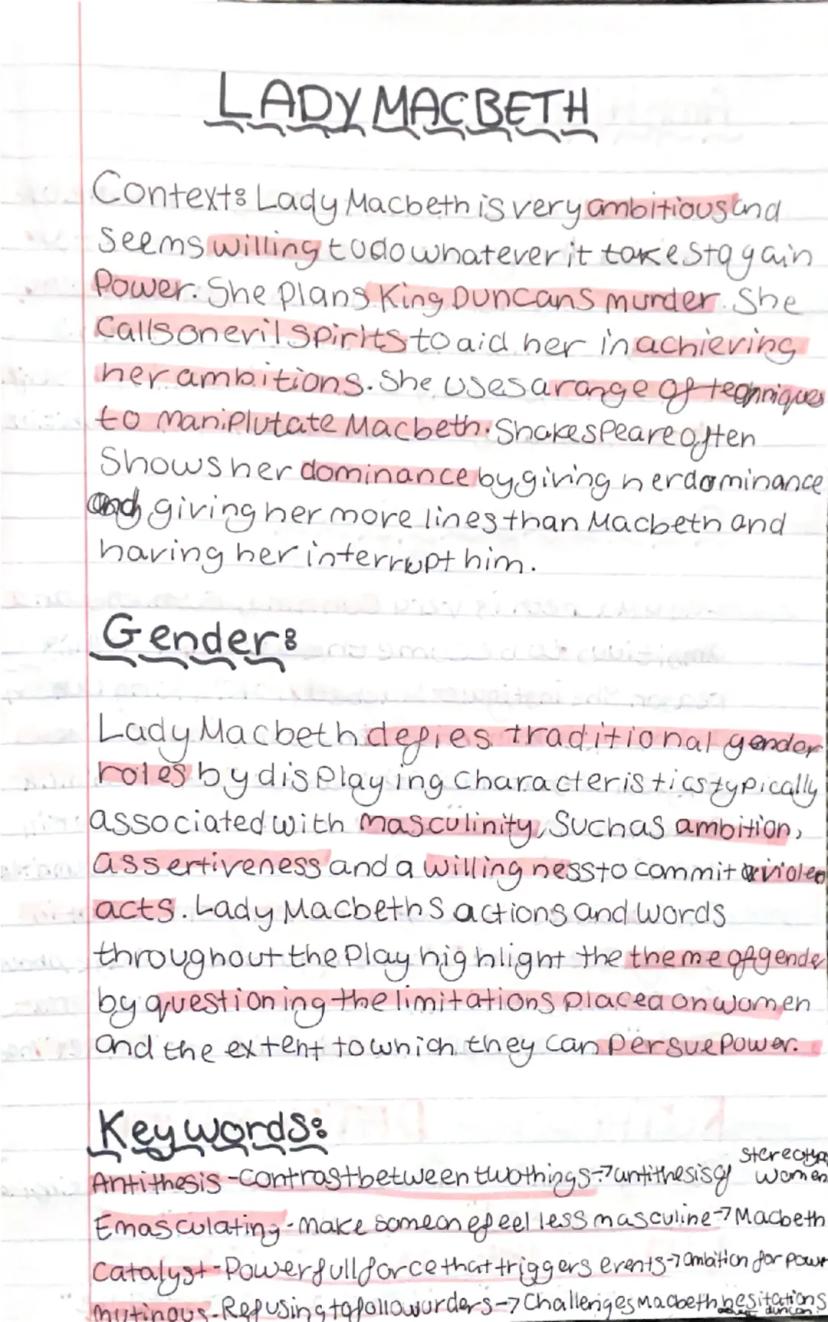 LADY MACBETH
Context: Lady Macbeth is very ambitious and
seems willing to do whatever it takes to gain
Power. She Plans King Duncans murder. She
calls on evil spirits to aid her in achieving
her ambitions. She uses a range of teqniques
to maniplutate Macbeth. Shakespeare often
Shows her dominance by giving her dominance
and giving her more lines than Macbeth and
having her interrupt him.
Gender:
Lady Macbeth defies traditional gender
roles by displaying characteristics typically
associated with masculinity, such as ambition,
assertiveness and a willingness to commit violen
acts. Lady Macbeths actions and words
throughout the Play highlight the theme of gende
by questioning the limitations placed on women
and the extent to which they can Persue Power.
Keywords:
Antithesis - contrast between two things → antithesis of stereotyp women
Emasculating - make someone feel less masculine → Macbeth
Catalyst - Powerfull force that triggers events → ambition for powr
mutinous - Refusing to follow orders → Challenges Macbeth hesitations
duncan.